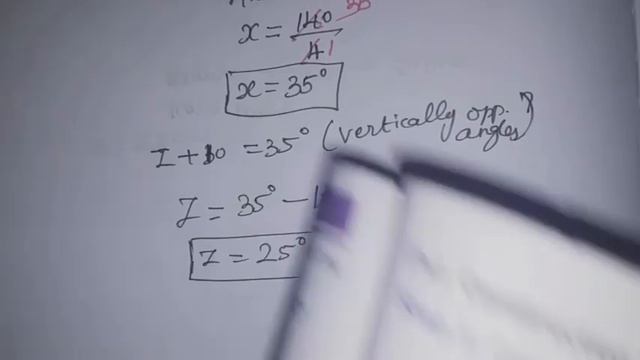 x = 140/4
x = 35°
z + 10 = 35° (vertically opp. angles)
z = 35° - 1
z = 25°